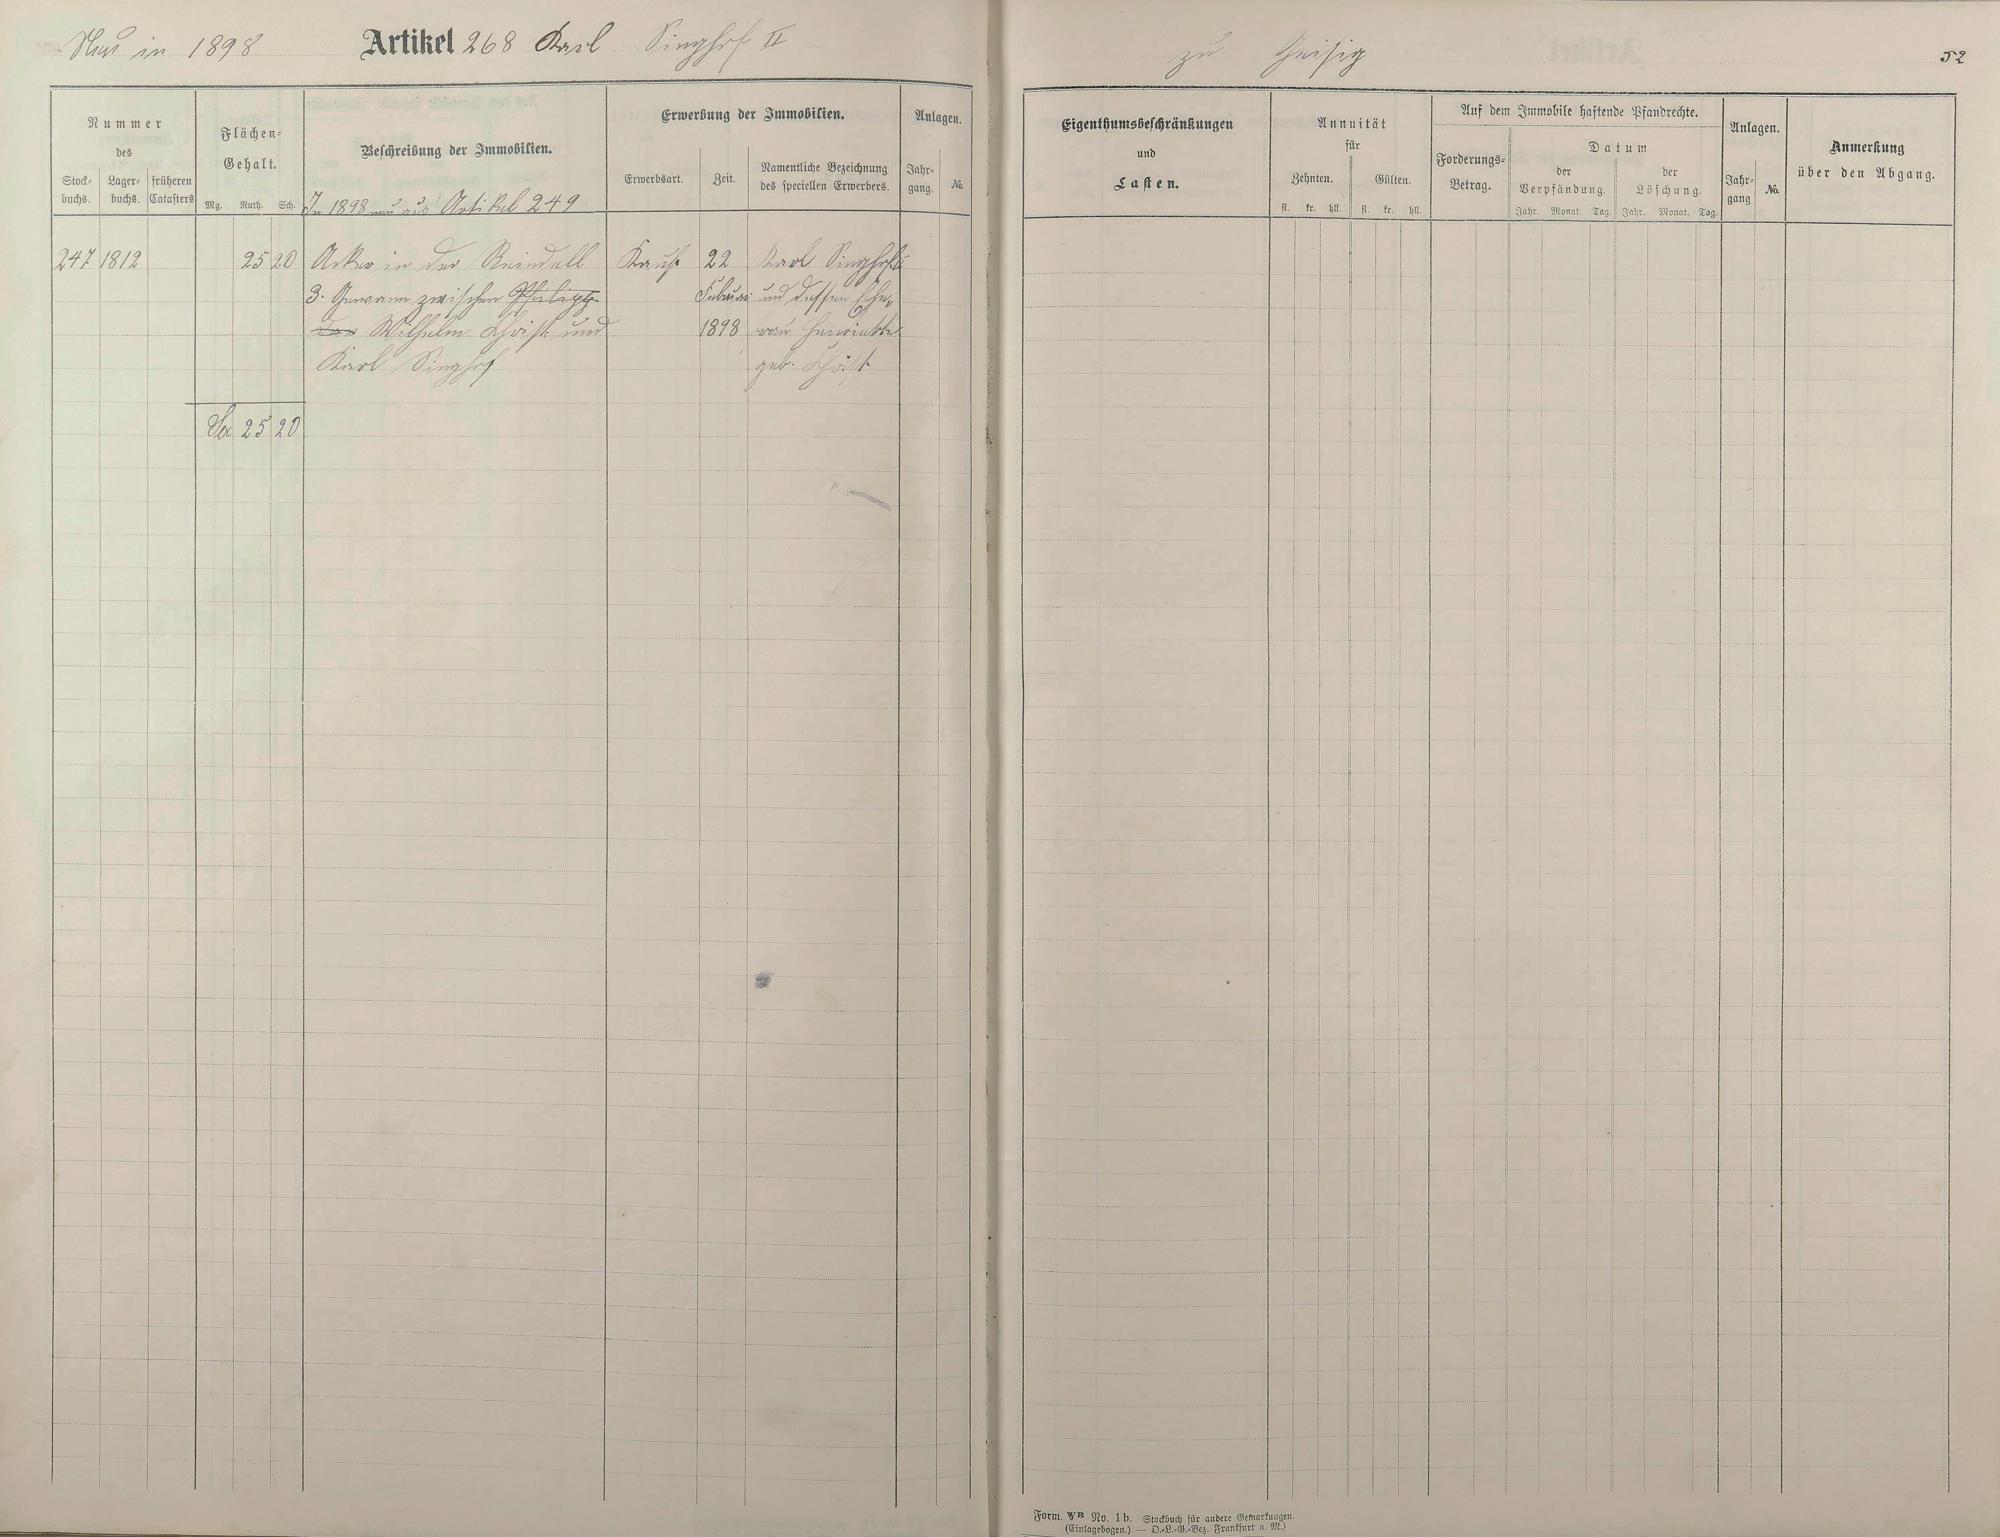 Neu in 1898 Artikel 268 Karl Singhof II zu Geisig 52
Nummer
des
Stock-
buchs.
Lager-
buchs.
früheren
Catasters
Flächen-
Gehalt.
Mg. Ruth. Sch.
Beschreibung der Immobilien.
In 1898 neu aus Artikel 249
Erwerbung der Immobilien.
Erwerbsart.
Zeit.
Namentliche Bezeichnung
des speciellen Erwerbers.
Anlagen.
Jahr-
gang.
No.
247 1812 25 20 Acker in der Reindell Kauf 22 Karl Singhof II
3. Gewann zwischen Philipp Februar und dessen Ehe-
Wilhelm Christ und 1898 frau Henriette
Karl Singhof geb. Christ
Sa 25 20
Eigenthumsbeschränkungen
und
Lasten.
Annuität
für
Zehnten.
Gülten.
fl. kr. hll. fl. kr. hll.
Auf dem Immobile haftende Pfandrechte.
Forderungs-
Betrag.
Datum
der
Verpfändung.
der
Löschung.
Jahr. Monat. Tag. Jahr. Monat. Tag.
Anlagen.
Jahr-
gang
No.
Anmerkung
über den Abgang.
Form. VB No. 1b. Stockbuch für andere Gemarkungen.
(Einlagebogen.) — O.-L.-G.-Bez. Frankfurt a. M.)